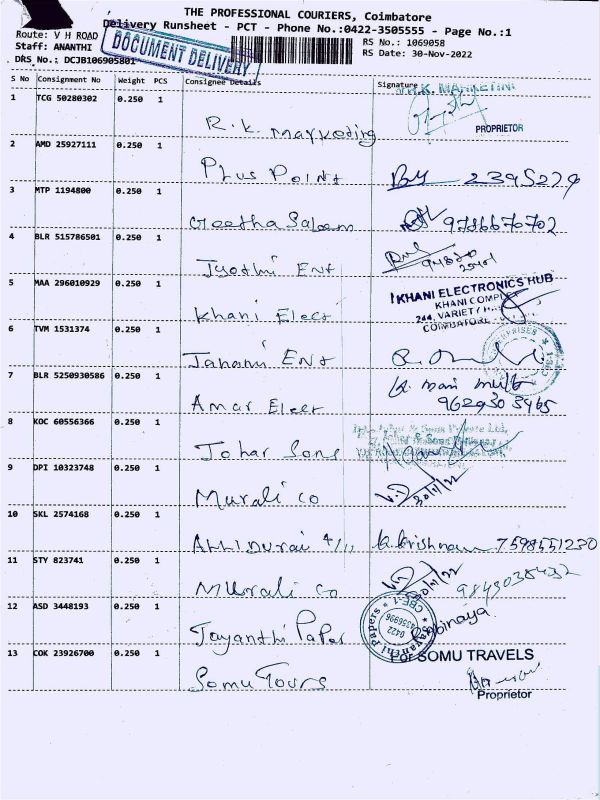 THE PROFESSIONAL COURIERS, Coimbatore
Delivery Runsheet - PCT - Phone No.:0422-3505555 - Page No.:1
Route: V H ROAD
RS No.: 1069058
Staff: ANANTHI
DOCUMENT DELIVERY
RS Date: 30-Nov-2022
DRS No.: DCJB106905801
S No Consignment No Weight PCS Consignee Details Signature
1 TCG 50280302 0.250 1 R.K. Marketing
PROPRIETOR
2 AMD 25927111 0.250 1 Plus Point
3 MTP 1194800 0.250 1 Geetha Salem 9786670702
4 BLR 515786501 0.250 1 Jyothi Ent
5 MAA 296010929 0.250 1 Khani Elect
KHANI ELECTRONICS HUB
KHANI COMPLEX
COIMBATORE
6 TVM 1531374 0.250 1 Ent
7 BLR 5250930586 0.250 1 Amar Elect
8 KOC 60556366 0.250 1 Johar Sons
9 DPI 10323748 0.250 1 Murali Co 30/11/22
10 SKL 2574168 0.250 1 7598551230
11 STY 823741 0.250 1 Murali Co
12 ASD 3448193 0.250 1 Jayanthi Paper
Jayanthi Papers
CBE-1
0422
Abinaya
13 COK 23926700 0.250 1 Somu Tours
For SOMU TRAVELS
Proprietor